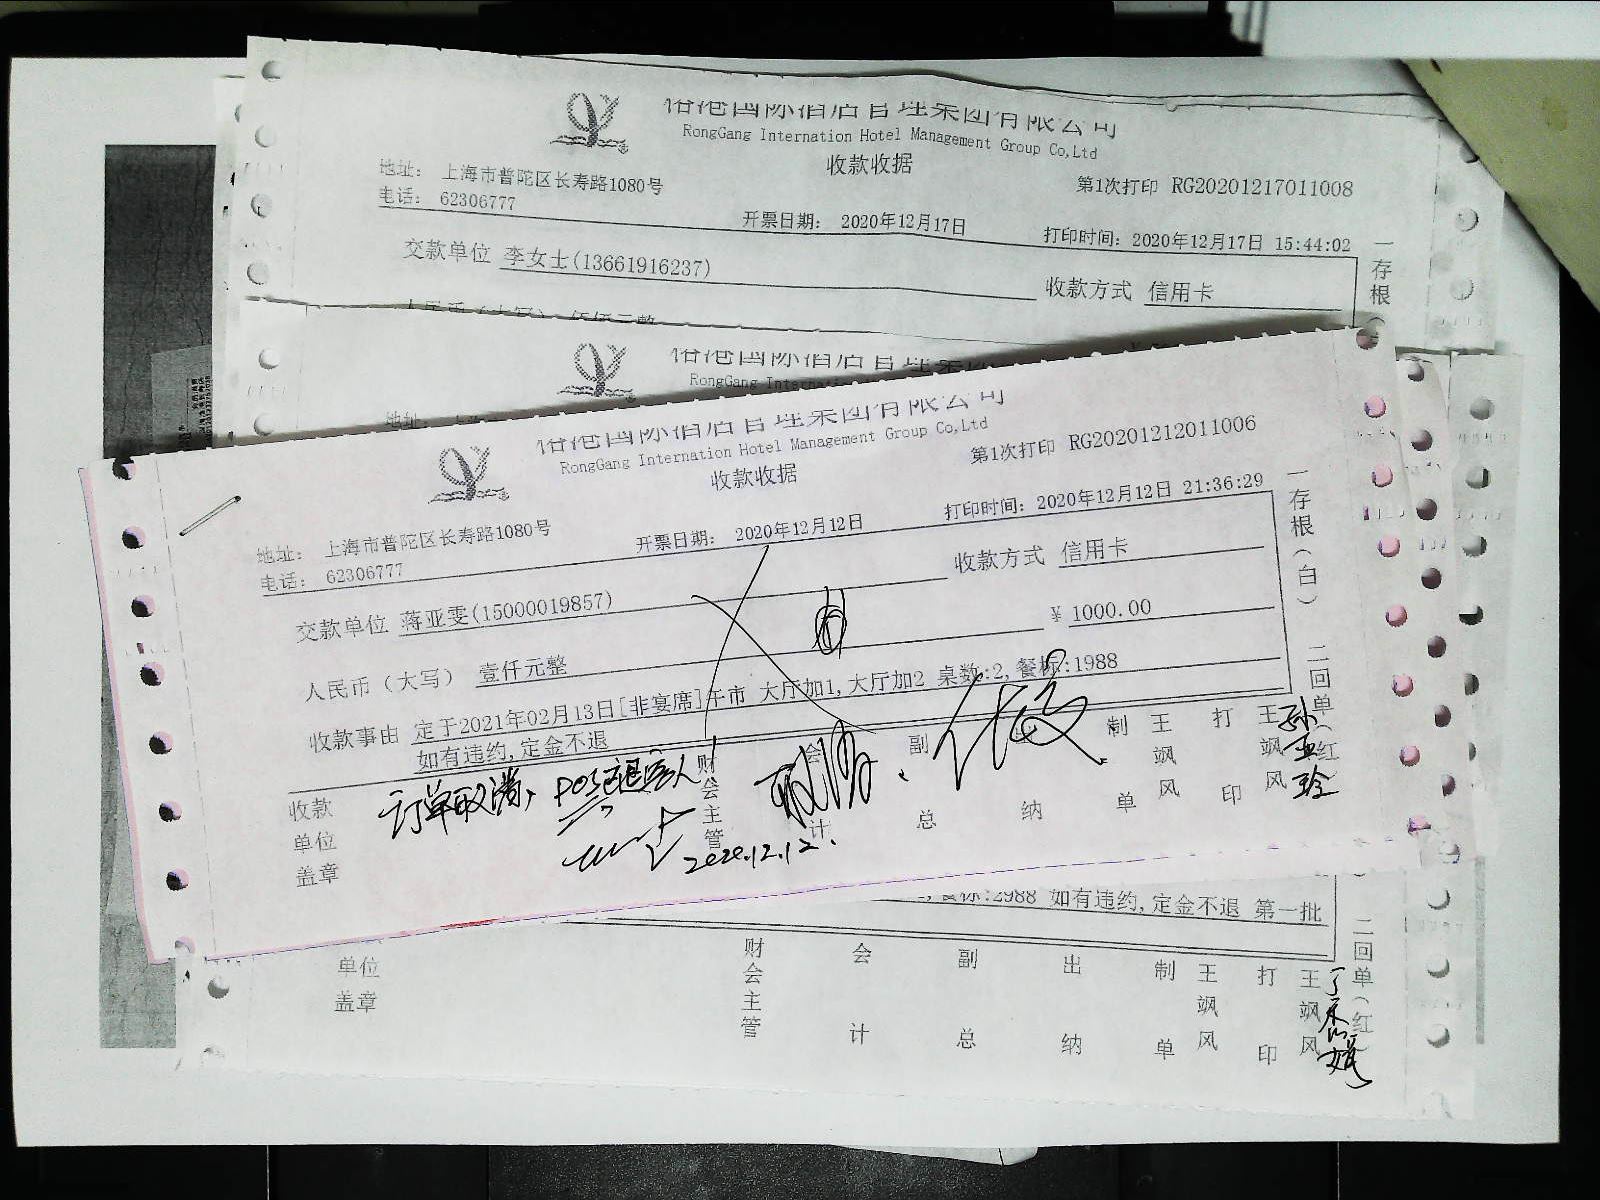 国际酒店管理集团有限公司
RongGang Internation Hotel Management Group Co,Ltd
收款收据
地址: 上海市普陀区长寿路1080号
电话: 62306777
第1次打印 RG20201217011008
开票日期: 2020年12月17日
打印时间: 2020年12月17日 15:44:02
交款单位 李女士(13661916237)
收款方式 信用卡
一存根(
人民币(大写) 伍仟元整
国际酒店管理集团
RongGang Internation
地址: 上
国际酒店管理集团有限公司
RongGang Internation Hotel Management Group Co,Ltd
收款收据
第1次打印 RG20201212011006
地址: 上海市普陀区长寿路1080号
电话: 62306777
开票日期: 2020年12月12日
打印时间: 2020年12月12日 21:36:29
交款单位 蒋亚雯(15000019857)
收款方式 信用卡
人民币(大写) 壹仟元整
¥ 1000.00
收款事由 定于2021年02月13日[非宴席]午市 大厅加1,大厅加2 桌数:2,餐标:1988
如有违约,定金不退
一存根(白) 二回单(红)
收款单位盖章
财会主管
会计
副总
出纳
制单 王飒风
打印 王飒风
订单取消, POS已退客人
2020.12.12.
餐标:2988 如有违约,定金不退 第一批
二回单(红)
单位盖章
财会主管
会计
副总
出纳
制单 王飒风
打印 王飒风